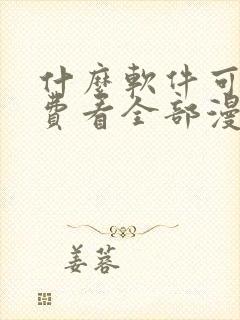 什麼軟件可
費看全部漫
姜蓉